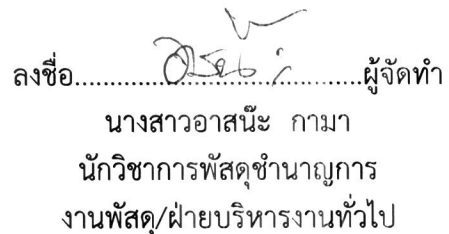 ลงชื่อ......................................ผู้จัดทำ
นางสาวอาสน๊ะ กามา
นักวิชาการพัสดุชำนาญการ
งานพัสดุ/ฝ่ายบริหารงานทั่วไป